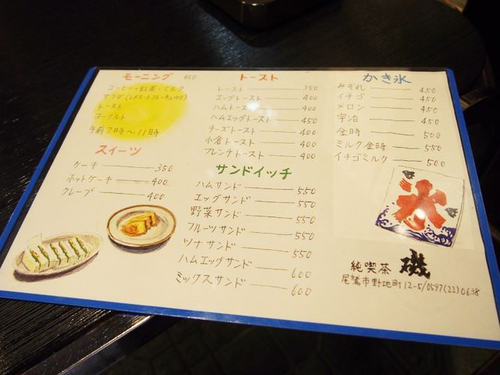 モーニング 450
コーヒー or 紅茶
サラダ
トースト
ヨーグルト
午前7時~11時
スイーツ
ケーキ 350
ホットケーキ 400
クレープ 400
トースト
トースト 350
エッグトースト 400
ハムトースト 400
ハムエッグトースト 450
チーズトースト 400
小倉トースト 400
フレンチトースト 400
サンドイッチ
ハムサンド 550
エッグサンド 550
野菜サンド 550
フルーツサンド 550
ツナサンド 550
ハムエッグサンド 600
ミックスサンド 600
かき氷
みぞれ 450
イチゴ 450
メロン 450
宇治 450
金時 500
ミルク金時 550
イチゴミルク 500
氷
純喫茶 磯
尾鷲市野地町12-5/0597(22)0638